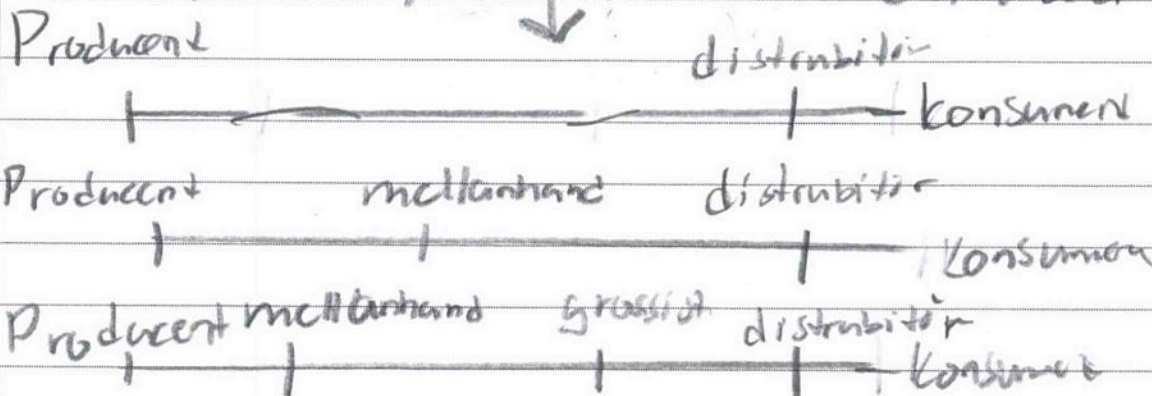 Producent distrubitör
konsument
Producent mellanhand distrubitör
konsumen
Producent mellanhand grossist distrubitör
konsument